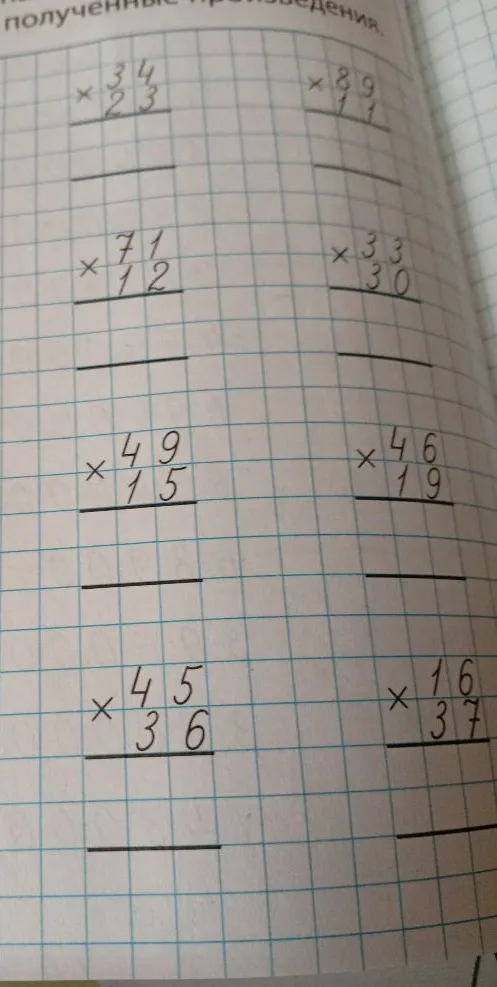 полученные произведения.
× 34
23
× 89
11
× 71
12
× 33
30
× 49
15
× 46
19
× 45
36
× 16
37